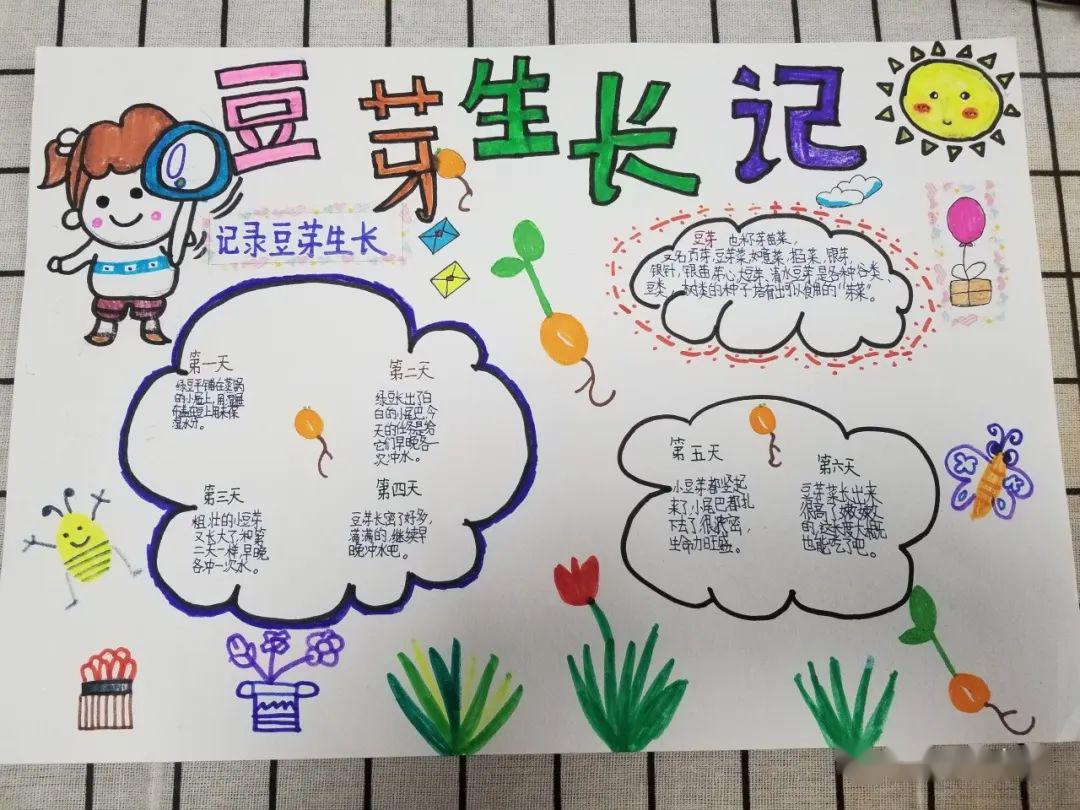 豆芽生长记
记录豆芽生长
豆芽 也称芽苗菜,
又名豆芽、豆芽菜、如意菜、掐菜、银芽、
银针、银苗、芽心、大豆芽、清水豆芽,是各种谷类、
豆类、树类的种子培育出可以食用的“芽菜”。
第一天
绿豆平铺在蒸锅
的小屉上,用湿
布盖在豆上用来保
湿水分。
第二天
绿豆长出了白
白的小尾巴,今
天的任务是给
它们早晚各一
次冲水。
第三天
粗壮的小豆芽
又长大了,和第
二天一样,早晚
各冲一次水。
第四天
豆芽长高了好多,
满满的,继续早
晚冲水吧。
第五天
小豆芽都竖起
来了,小尾巴都扎
下去了,很浓密,
生命力旺盛。
第六天
豆芽菜长出来
很高了,嫩嫩
的,这长度大概
也能吃了吧。